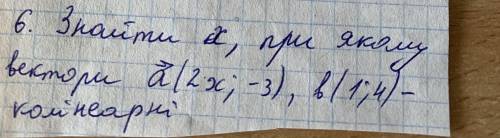 6. Знайти x, при якому
вектори a⃗(2x; -3), в(1; 4) -
колінеарні